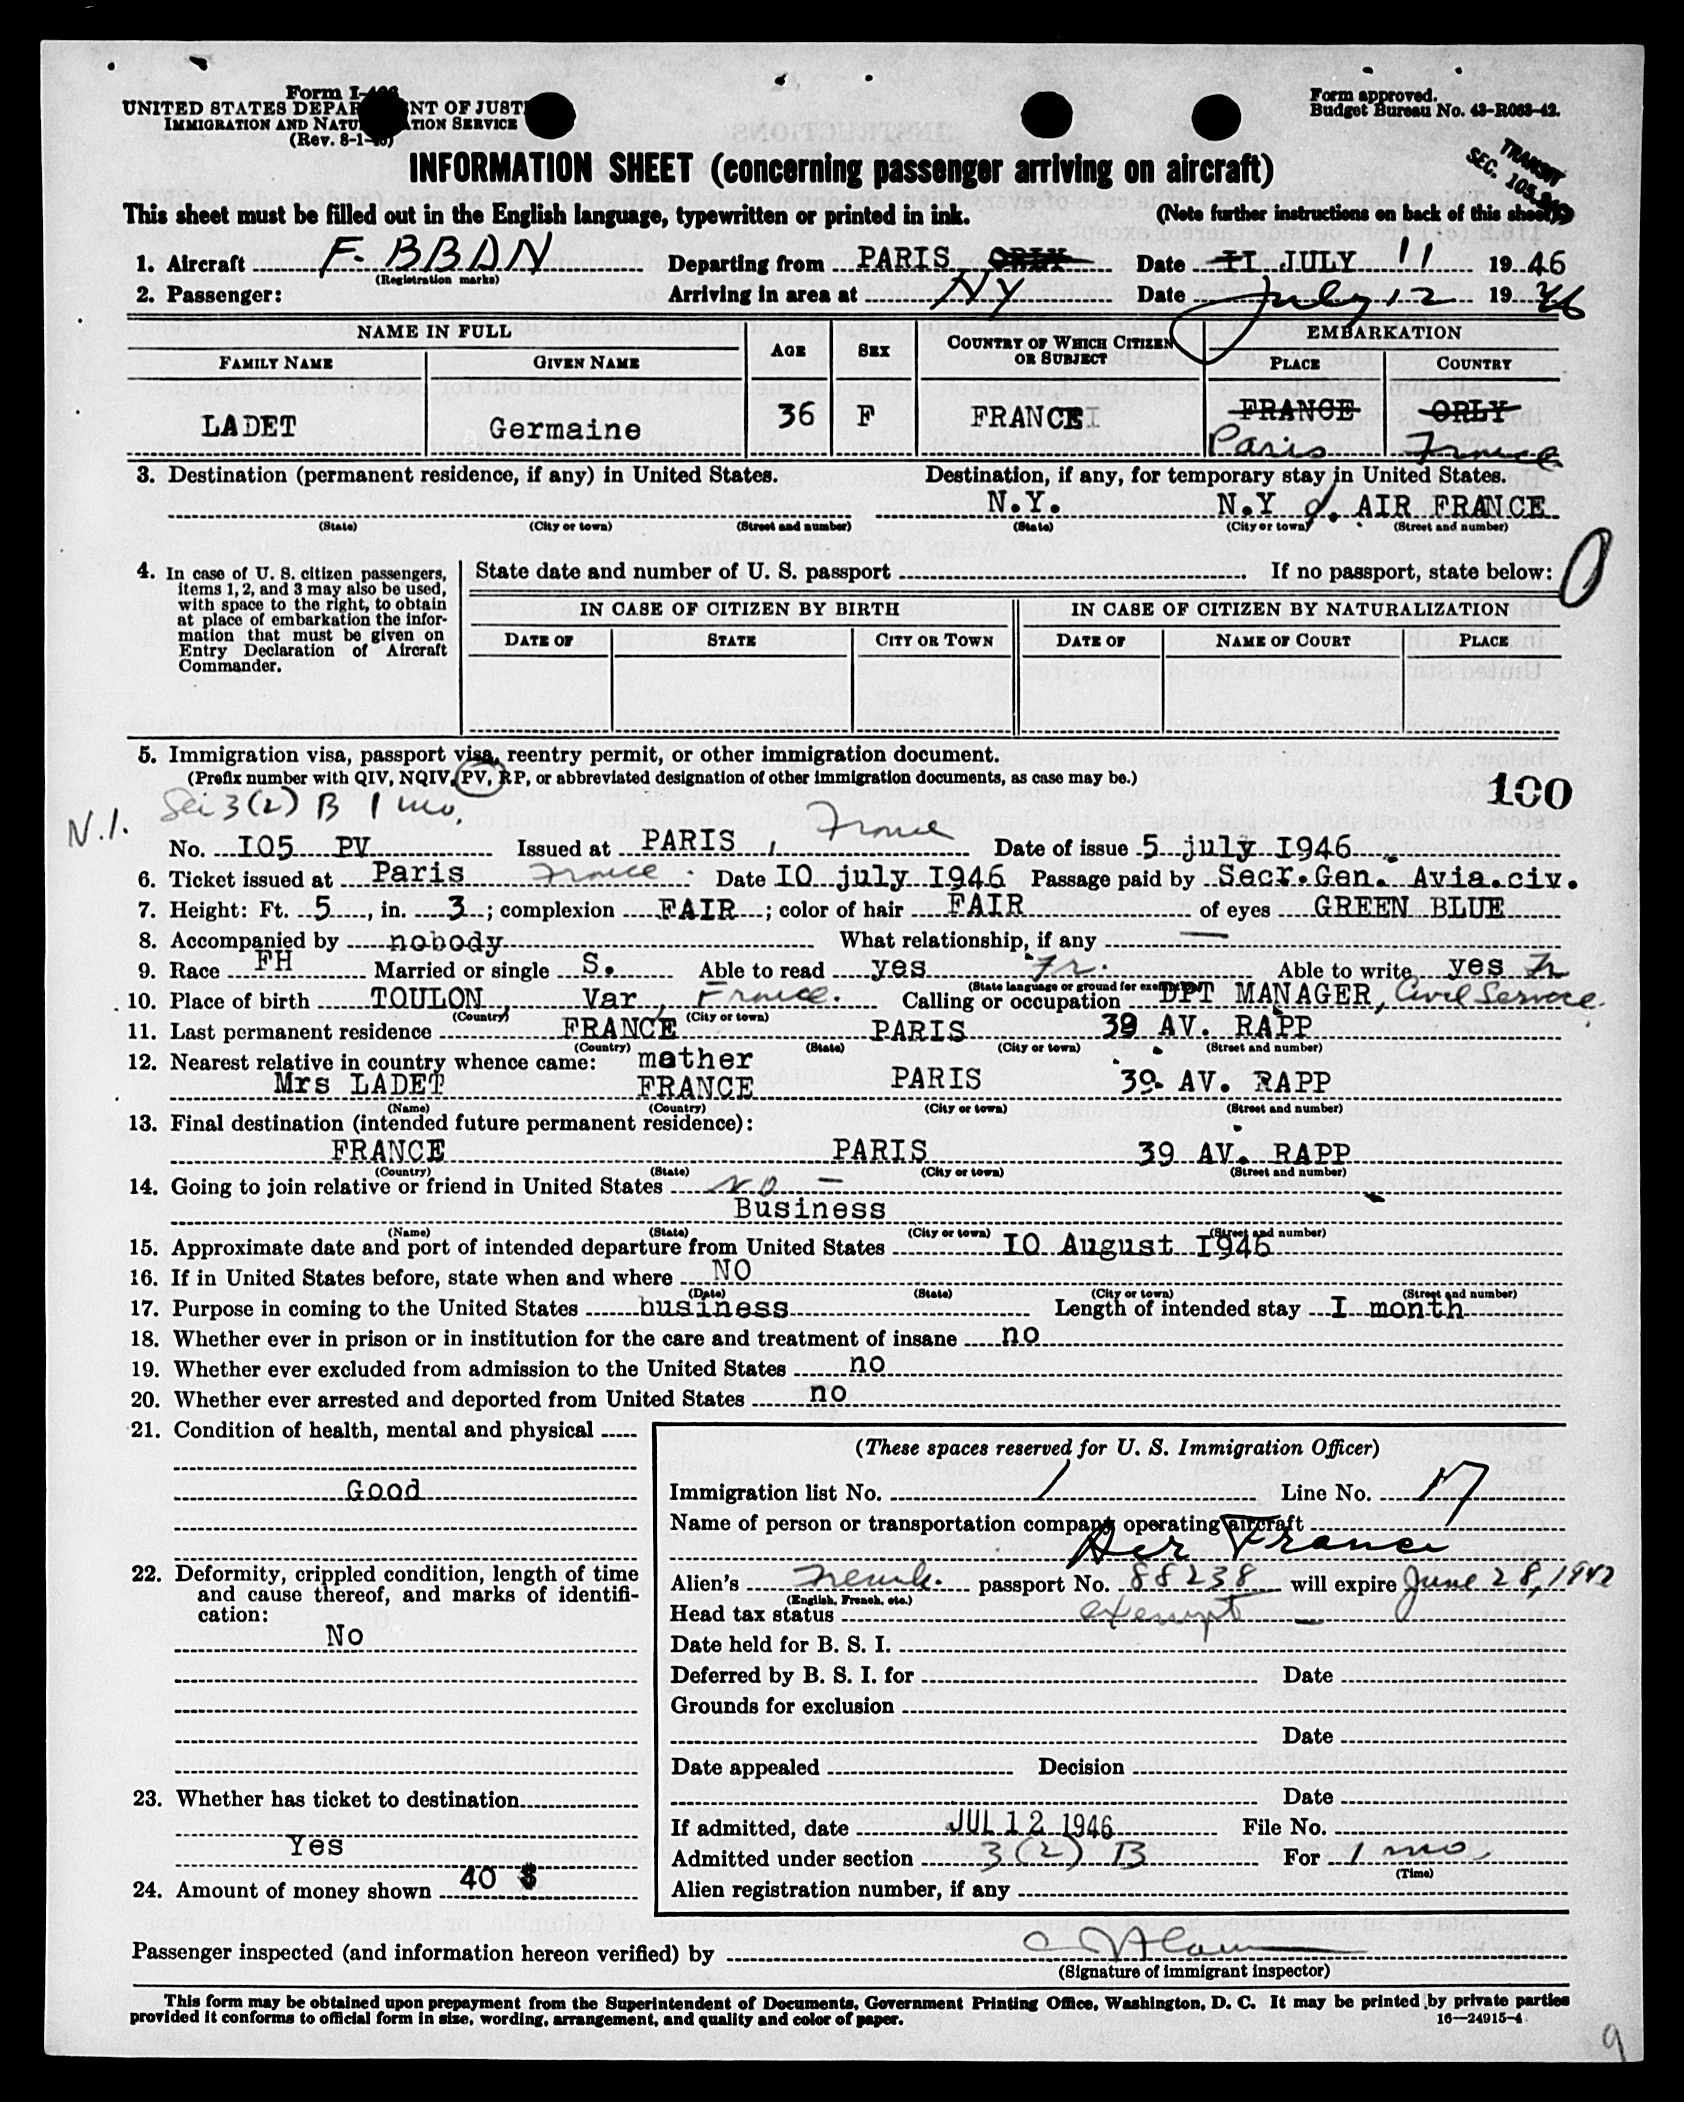 Form I-466
UNITED STATES DEPARTMENT OF JUSTICE
IMMIGRATION AND NATURALIZATION SERVICE
(Rev. 8-1-45)
Form approved.
Budget Bureau No. 43-R063-42.
TRANSIT
SEC. 103.
INFORMATION SHEET (concerning passenger arriving on aircraft)
This sheet must be filled out in the English language, typewritten or printed in ink. (Note further instructions on back of this sheet)
1. Aircraft F. BBDN Departing from PARIS ORLY Date II JULY 11 1946
(Registration marks)
2. Passenger: Arriving in area at NY Date July 12 1946
NAME IN FULL AGE SEX COUNTRY OF WHICH CITIZEN OR SUBJECT EMBARKATION
FAMILY NAME GIVEN NAME PLACE COUNTRY
LADET Germaine 36 F FRANCE FRANCE ORLY
Paris France
3. Destination (permanent residence, if any) in United States. Destination, if any, for temporary stay in United States.
N.Y. N.Y AIR FRANCE
(State) (City or town) (Street and number) (State) (City or town) (Street and number)
4. In case of U. S. citizen passengers, items 1, 2, and 3 may also be used, with space to the right, to obtain at place of embarkation the information that must be given on Entry Declaration of Aircraft Commander.
State date and number of U. S. passport If no passport, state below:
IN CASE OF CITIZEN BY BIRTH IN CASE OF CITIZEN BY NATURALIZATION
DATE OF STATE CITY OR TOWN DATE OF NAME OF COURT PLACE
5. Immigration visa, passport visa, reentry permit, or other immigration document.
(Prefix number with QIV, NQIV, PV, RP, or abbreviated designation of other immigration documents, as case may be.)
100
3(2) B 1 mo.
N.I.
No. I05 PV Issued at PARIS, France Date of issue 5 july I946
6. Ticket issued at Paris France Date I0 july I946 Passage paid by Secr.Gen. Avia.civ.
7. Height: Ft. 5, in. 3; complexion FAIR; color of hair FAIR of eyes GREEN BLUE
8. Accompanied by nobody What relationship, if any —
9. Race FH Married or single S. Able to read yes Fr. Able to write yes Fr
(State language or ground for exemption)
10. Place of birth TOULON, Var, France. Calling or occupation DPT MANAGER, Civil Service.
(Country) (City or town)
11. Last permanent residence FRANCE PARIS 39 AV. RAPP
(Country) (State) (City or town) (Street and number)
12. Nearest relative in country whence came: mother
Mrs LADET FRANCE PARIS 39. AV. RAPP
(Name) (Country) (City or town) (Street and number)
13. Final destination (intended future permanent residence):
FRANCE PARIS 39 AV. RAPP
(Country) (State) (City or town) (Street and number)
14. Going to join relative or friend in United States NO —
Business
(Name) (State) (City or town) (Street and number)
15. Approximate date and port of intended departure from United States I0 August I946
16. If in United States before, state when and where NO
(Date) (State) (City or town) (Street and number)
17. Purpose in coming to the United States business Length of intended stay I month
18. Whether ever in prison or in institution for the care and treatment of insane no
19. Whether ever excluded from admission to the United States no
20. Whether ever arrested and deported from United States no
21. Condition of health, mental and physical
Good
22. Deformity, crippled condition, length of time and cause thereof, and marks of identification:
No
23. Whether has ticket to destination
Yes
24. Amount of money shown 40 $
(These spaces reserved for U. S. Immigration Officer)
Immigration list No. 1 Line No. 17
Name of person or transportation company operating aircraft
Air France
Alien's French passport No. 88238 will expire June 28, 1942
(English, French, etc.)
Head tax status exempt —
Date held for B. S. I.
Deferred by B. S. I. for Date
Grounds for exclusion
Date
Date appealed Decision
Date
If admitted, date JUL 12 1946 File No.
Admitted under section 3(2) B For 1 mo
(Time)
Alien registration number, if any
Passenger inspected (and information hereon verified) by
(Signature of immigrant inspector)
This form may be obtained upon prepayment from the Superintendent of Documents, Government Printing Office, Washington, D. C. It may be printed by private parties
provided it conforms to official form in size, wording, arrangement, and quality and color of paper. 16—24915-4
9